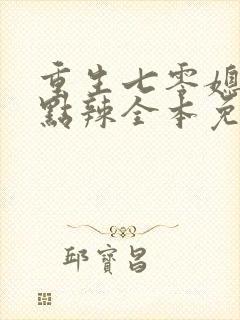 重生七零媳
點辣全本免
邱寶昌